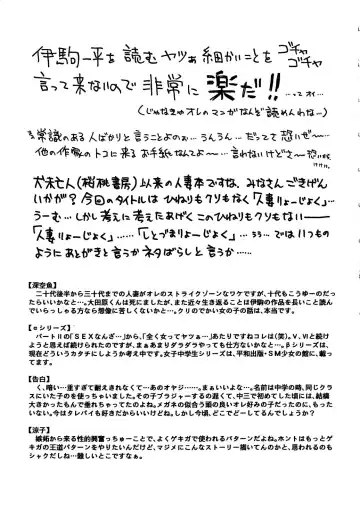 伊駒一平を読むヤツぁ細かいことをゴチャゴチャ
言って来ないので非常に楽だ!!…って オイ…
(じゃなきゃオレのマンガなんざ読めんわなー)
常識のある人ばかりと言うことよのぉ…うんうん…だってさ 恐いぜ〜…
他の作家のトコに来るお手紙なんてよ〜…言わないけどさ〜
犬未亡人(桜桃書房)以来の人妻本ですね、みなさんごきげん
いかが?今回のタイトルはひねりもクソもなく「人妻りょーじょく」…
うーむ…しかし考えに考えたあげくこのひねりもクソもない!
「人妻りょーじょく」…「しとづまりょーじょく」…ではいつもの
ようにあとがきと言うかネタばらしと言うか…
【深空魚】
二十代後半から三十代までの人妻がオレのストライクゾーンなワケですが、十代もこうゆーのだっ
たらいいかなと…。大田原くんは死にましたが、また近々生き返ることは伊駒の作品を長いこと読ん
でいらっしゃる方なら想像に苦しくないかと…。クリのでかい女の子の話は、本当です。
【αシリーズ】
パートⅡの「SEXなんざ…」から、「全く女ってヤツぁ…」あたりですねコレは(笑)。Ⅴ、Ⅵと続け
ようと思えば続けられたのですが、まぁあまりダラダラやっても仕方ないかなと…。βシリーズは、
現在どういうカタチにしようか考え中です。女子中学生シリーズは、平和出版・SM少女の館に、載っ
てます。
【告白】
く、暗い…重すぎて耐えきれなくて…あのオヤジ……まぁいいよな…。名前は中学の時、同じクラ
スにいた子のを使っちゃいました。その子ブラジャーするの遅くて、中三で初めてした頃には、結構
大きかったもんで垂れちゃってたのよね。メガネの似合う頭の良いオレ好みの子だったのに、もった
いない。今はタレパイも好きだからいいけどね。しかし今頃、どこでどーしてるんでしょうか?
【涼子】
嫉妬から来る性的興奮っちゅーことで、よくゲキガで使われるパターンだよね。ホントはもっとゲ
キガの王道パターンをやりたいんだけど、マジメにこんなストーリー描いてんのかと、思われるのも
シャクだしね…難しいとこですなぁ。